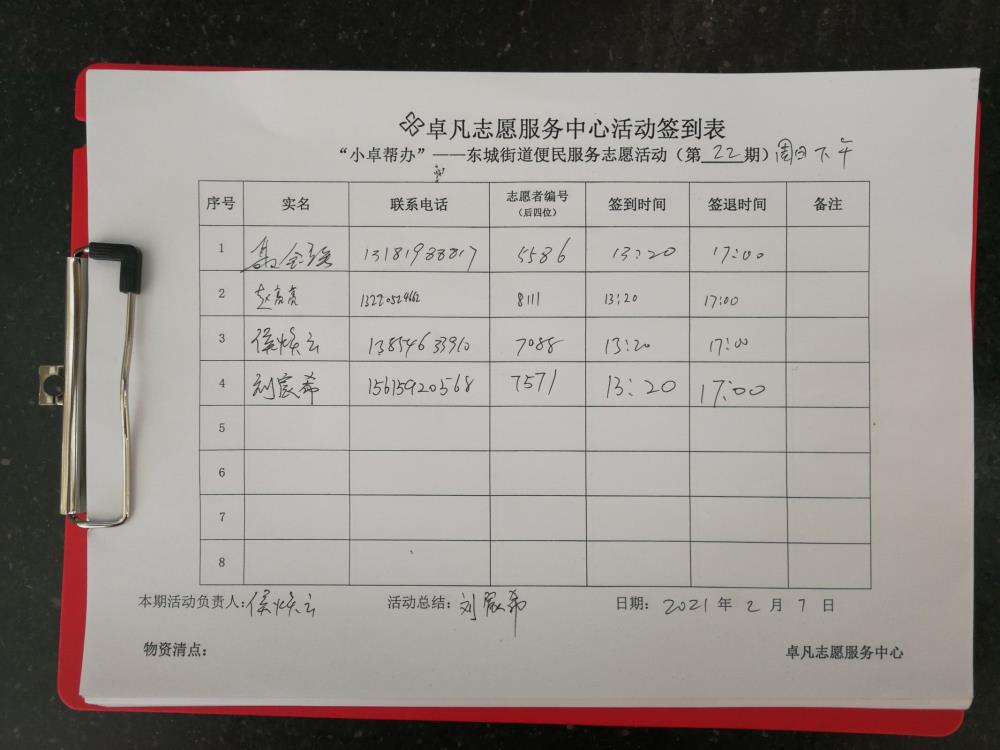 卓凡志愿服务中心活动签到表
“小卓帮办”——东城街道便民服务志愿活动（第 22 期）周日下午
序号 实名 联系电话 志愿者编号（后四位） 签到时间 签退时间 备注
1 5586 13:20 17:00
2 赵亮亮 8111 13:20 17:00
3 侯焕云 13854633910 7088 13:20 17:00
4 刘宸希 15615920568 7571 13:20 17:00
5
6
7
8
本期活动负责人:侯焕云 活动总结:刘宸希 日期: 2021 年 2 月 7 日
物资清点： 卓凡志愿服务中心